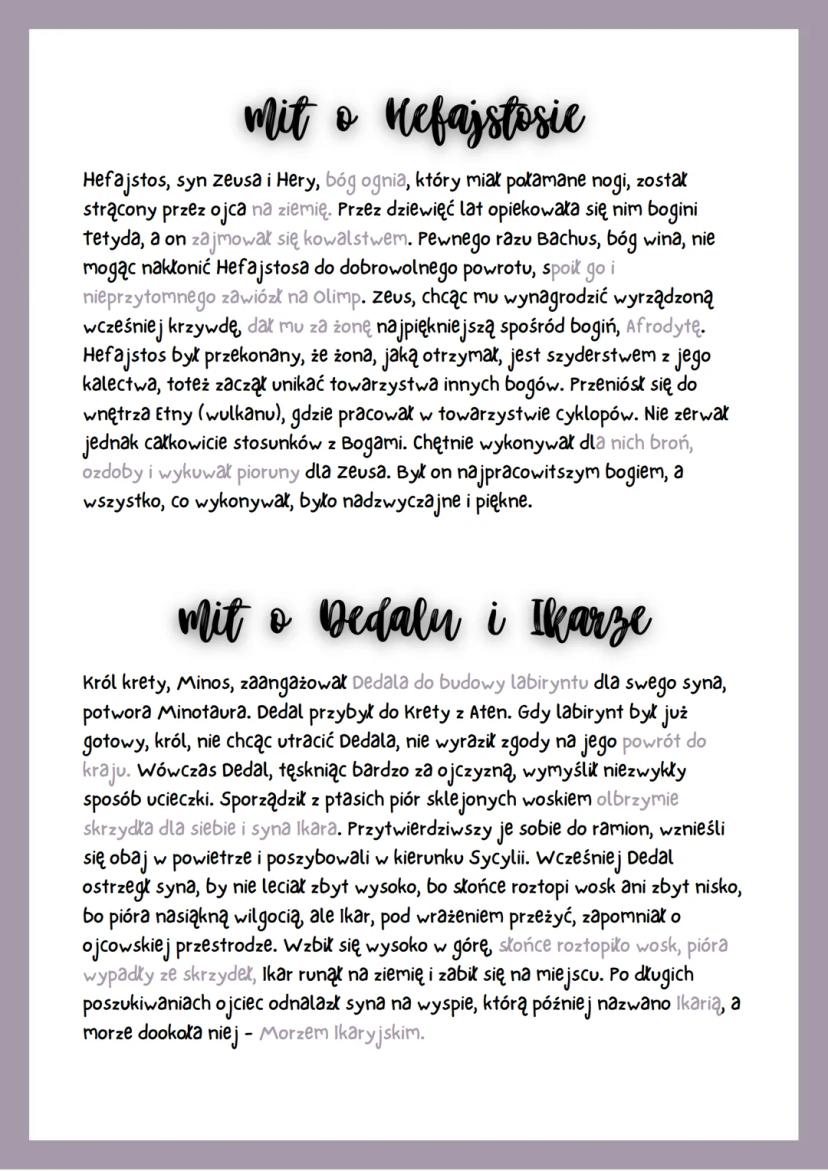 Mit o Hefajstosie
Hefajstos, syn Zeusa i Hery, bóg ognia, który miał połamane nogi, został
strącony przez ojca na ziemię. Przez dziewięć lat opiekowała się nim bogini
Tetyda, a on zajmował się kowalstwem. Pewnego razu Bachus, bóg wina, nie
mogąc nakłonić Hefajstosa do dobrowolnego powrotu, spoił go i
nieprzytomnego zawiózł na Olimp. Zeus, chcąc mu wynagrodzić wyrządzoną
wcześniej krzywdę, dał mu za żonę najpiękniejszą spośród bogiń, Afrodytę.
Hefajstos był przekonany, że żona, jaką otrzymał, jest szyderstwem z jego
kalectwa, toteż zaczął unikać towarzystwa innych bogów. Przeniósł się do
wnętrza Etny (wulkanu), gdzie pracował w towarzystwie cyklopów. Nie zerwał
jednak całkowicie stosunków z Bogami. Chętnie wykonywał dla nich broń,
ozdoby i wykuwał pioruny dla Zeusa. Był on najpracowitszym bogiem, a
wszystko, co wykonywał, było nadzwyczajne i piękne.
Mit o Dedalu i Ikarze
Król krety, Minos, zaangażował Dedala do budowy labiryntu dla swego syna,
potwora Minotaura. Dedal przybył do Krety z Aten. Gdy labirynt był już
gotowy, król, nie chcąc utracić Dedala, nie wyraził zgody na jego powrót do
kraju. Wówczas Dedal, tęskniąc bardzo za ojczyzną, wymyślił niezwykły
sposób ucieczki. Sporządził z ptasich piór sklejonych woskiem olbrzymie
skrzydła dla siebie i syna Ikara. Przytwierdziwszy je sobie do ramion, wznieśli
się obaj w powietrze i poszybowali w kierunku Sycylii. Wcześniej Dedal
ostrzegł syna, by nie leciał zbyt wysoko, bo słońce roztopi wosk ani zbyt nisko,
bo pióra nasiąkną wilgocią, ale Ikar, pod wrażeniem przeżyć, zapomniał o
ojcowskiej przestrodze. Wzbił się wysoko w górę, słońce roztopiło wosk, pióra
wypadły ze skrzydeł, Ikar runął na ziemię i zabił się na miejscu. Po długich
poszukiwaniach ojciec odnalazł syna na wyspie, którą później nazwano Ikarią, a
morze dookoła niej – Morzem Ikaryjskim.